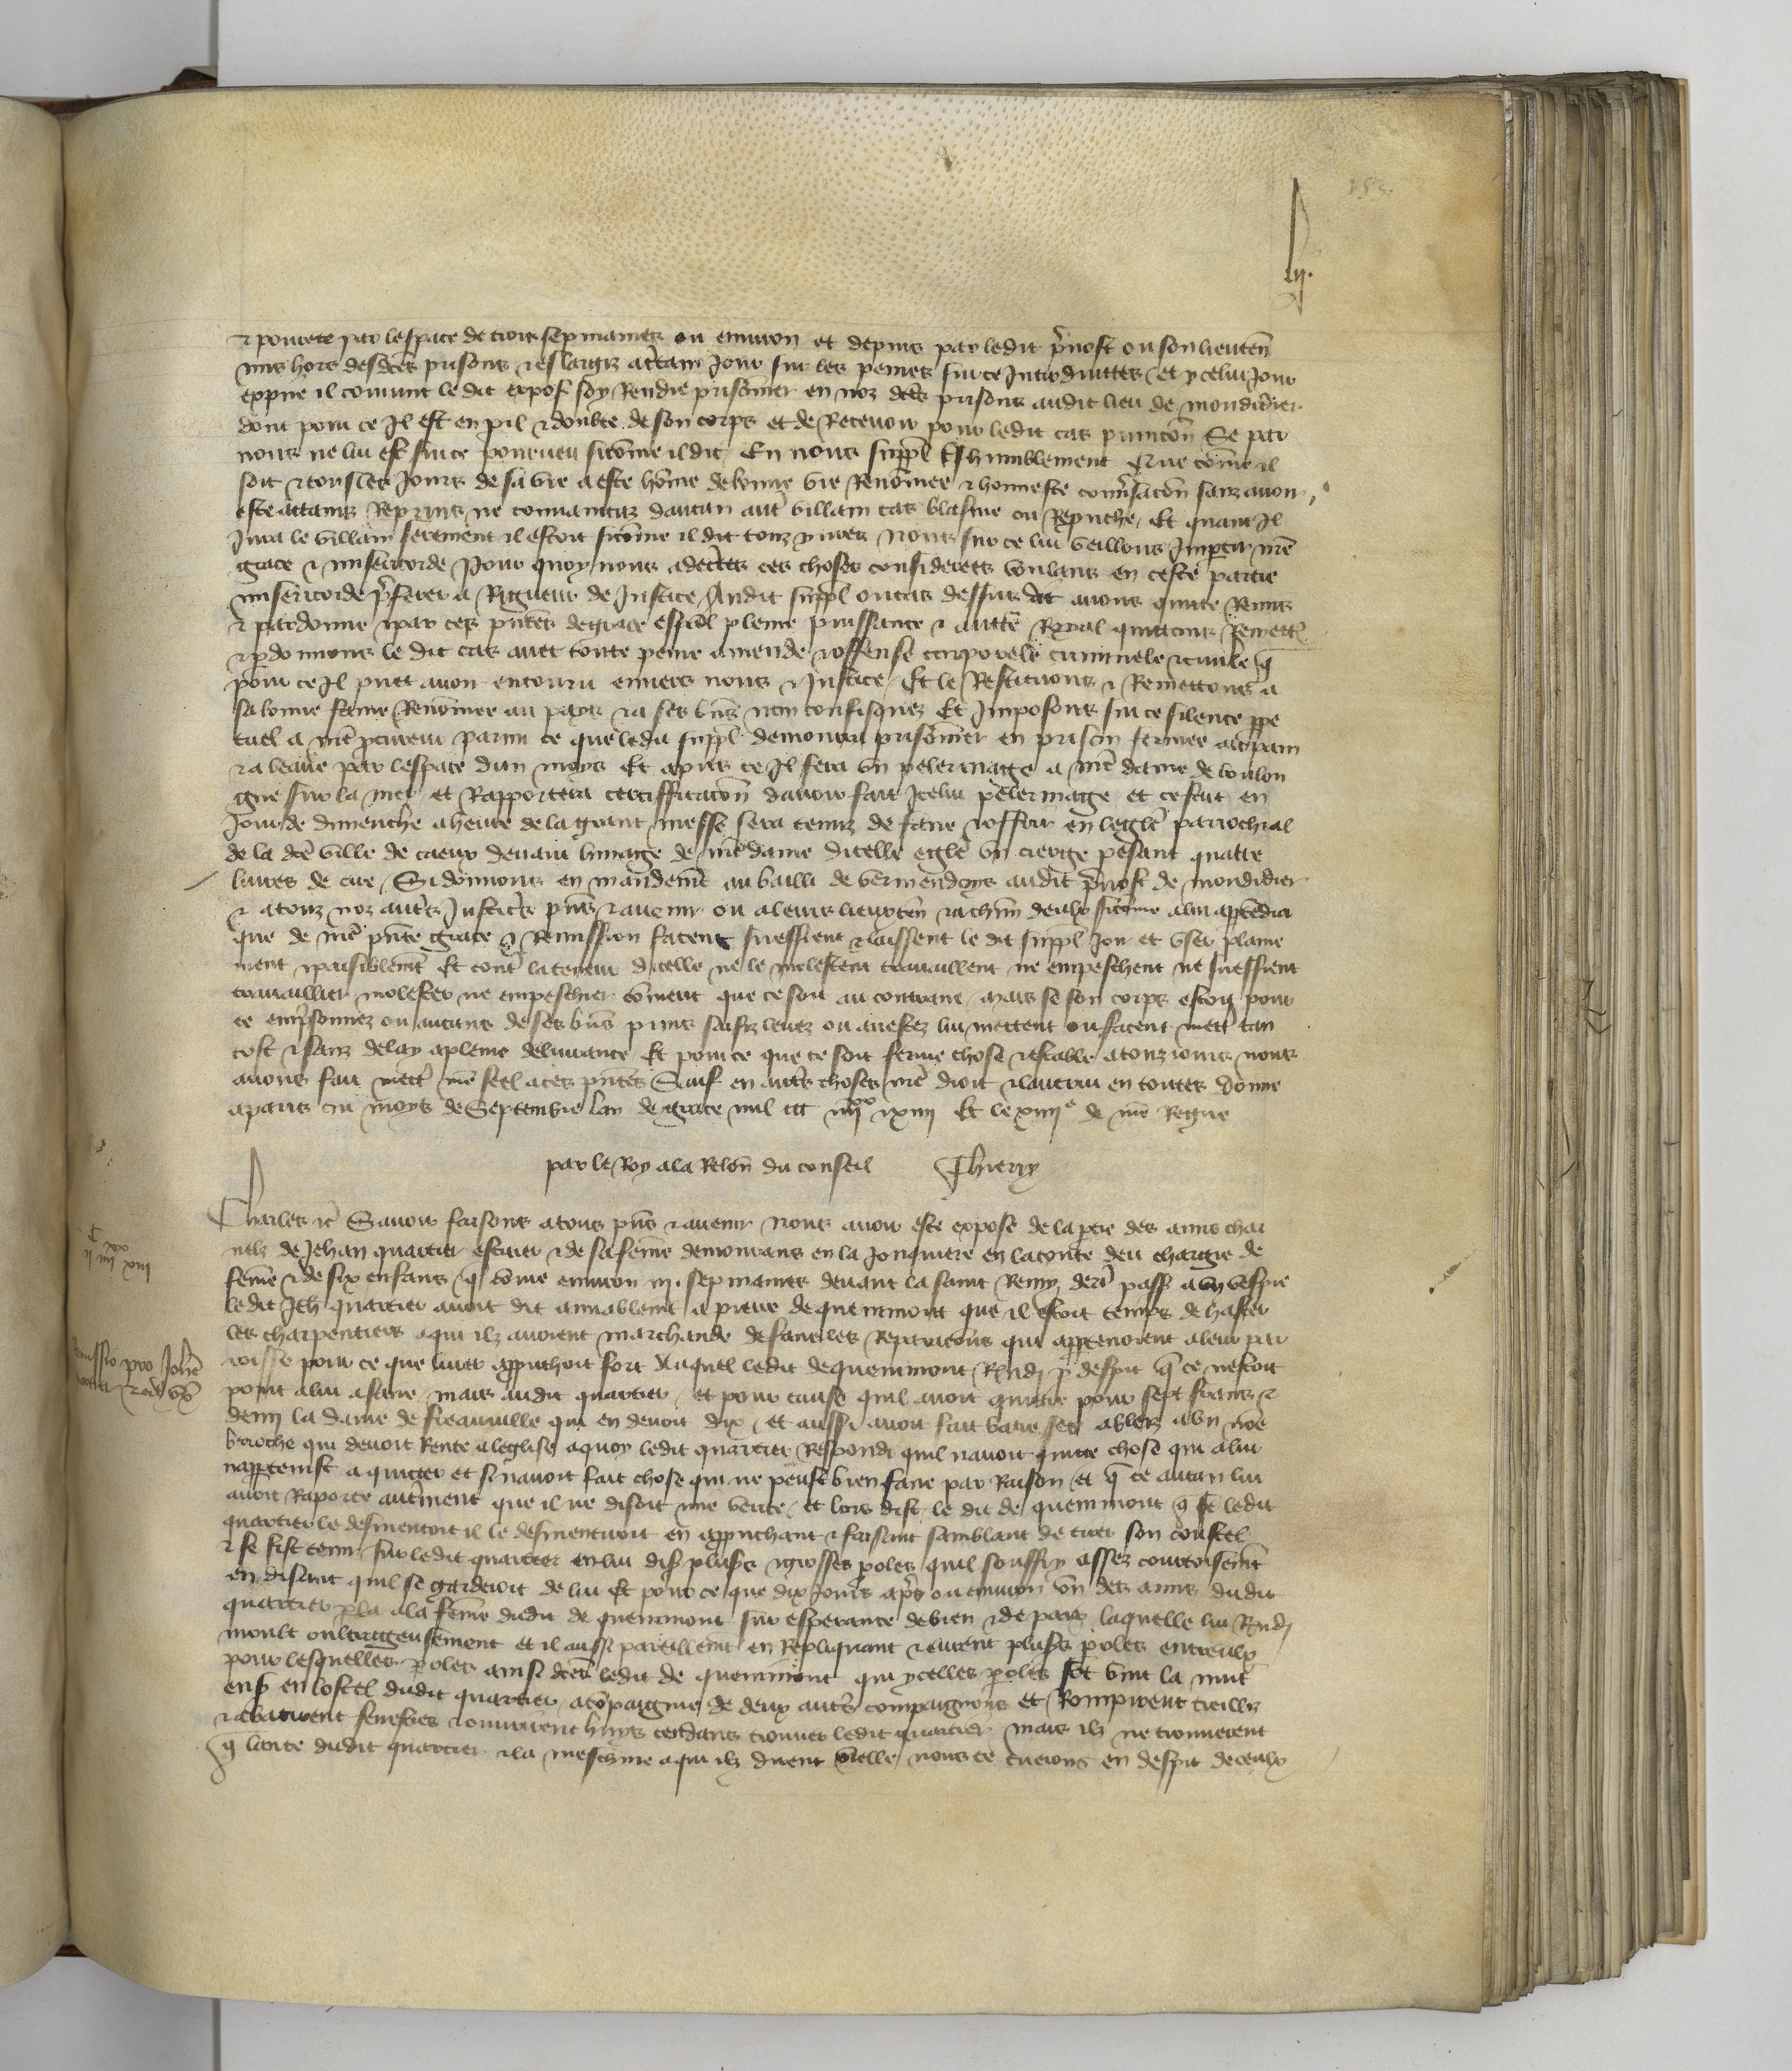 lij.
et povrete par lespace de trois sepmaines ou environ et depuis par ledit p̃vost ou son lieuteñ
mis hors desdc̃es prisons et eslargiz a certain Jour sur les peines sur ce Introduittes et ycelui Jour
expire il convint le dit expos̃ soy Rendre prisonnier en noz dc̃es prisons audit lieu de mondidier
dont pour ce Il est en p̱il et doubte de son corps et de Recevoir pour ledit cas punicõn Se par
nous ne lui est sur ce pourveu sicõme il dit En nous suppl̃ t̃shumblement Que cõme il
soit et tous les Jours de sa vie a este hõme de bonne vie Renõmee et honneste conv̾sacõn sanz avoir
este attains Reprins ne convaincuz daucun autr̃ villain cas blasme ou Reprouche / Et quant Il
Jura le villain serement il estoit sicõme il dit touz yvres Nous sur ce lui veillons Imp̱tir nr̃e
grace et misericorde Pour quoy nous adc̃ertes ces choses considerees voulans en ceste partie
misericorde p̃ferer a Rigueur de Justice / Audit suppl̃ ou cas dessus dit avons quitte Remis
et pardonne et par ces pñtes de grace esp̃ial pleine puissance et auctẽ Royal quittons Remett̃
et p̱donnons le dit cas avec toute peine amende et offense corporele criminele et civile q̃
pour ce Il puet avoir encouru envers nous et Justice / Et le Restituons et Remettons a
sa bonne fame Renõmee au pays et a ses biẽs non confisquez Et Imposons sur ce silence p̱pe
tuel a nr̃e p̱cureur parmi ce que ledit suppl̃ demourra prisonnier en prison fermee au pain
et a leaue par lespace dun moys Et apres ce Il fera un pelerinage a nr̃e dame de boulon
gne sur la mer et Rapportera certifficacõn davoir fait Icelui pelerinage et ce fait en
Jour de dimenche a heure de la grant messe sera tenuz de faire et offrir en leglẽ parrochial
de la dc̃e ville de caeux devant limage de nr̃e dame dicelle eglẽ un cierge pesant quatre
livres de cire / Si donnons en mandemẽt au bailli de vermendoys audit p̃vost de mondidier
et a touz noz autr̃s Justicr̃s pñs et avenir ou a leurs lieuxteñ et a chũn deulx sicõme a lui app̱tendra
que de nr̃e pñte grace et Remission facent sueffrent et laissent le dit suppl̃ Joir et user plaine
ment et paisiblemẽt Et contr̃ la teneur dicelle ne le molestent travaillent ne empeschent ne sueffrent
travaillier molester ne empeschier cõment que ce soit au contraire / mais se son corps estoit pour
ce emp̃sonnez ou aucuns de ses biẽs prins saisiz levez ou arestez lui mettent ou facent mett̃ tan
tost et sanz delay a pleine delivrance Et pour ce que ce soit ferme chose et estable a touz jours nous
avons fait mett̃ nr̃e seel a ces pñtes Sauf en autr̃s choses nr̃e droit et lautrui en toutes Donne
a paris ou moys de Septembre lan de grace mil ccc iiij^xx et xiiij Et le xiiij^e de nr̃e Regne
par le Roy a la Relõn du conseil Thierry
Charles &c̃ Savoir faisons a tous pñs et avenir Nous avoir este expose de la p̱tie des amis char
nelz de Jehan quartier escuier et de sa fem̃e demourans en la Jonquiere en la conte deu chargie de
fem̃e et de six enfans / q̃ cõme environ iij. sepmaines devant la saint Remy derr̃ pass̃ a un vespre
ledit Jeh̃ quartier avoit dit amiablemẽt a pierre de quenimont que il estoit temps de haster
les charpentiers a qui ilz avoient marchande de faire les Reparacõns qui app̱tenoient a leur par
roisse pour ce que liver approuchoit fort Auquel ledit de quenimont Rũdj p̱ despit q̃ ce nestoit
point a lui a faire / mais audit quartier / et pour cause quil avoit quittie pour sept frans et
demi la dame de freauville qui en devoit dix / et aussi avoit fait batre ses ablez a un nõe
brioche qui devoit Rente a leglise / a quoy ledit quartier Respondi quil navoit quitte chose qui a lui
napp̱tenist a quitter et si navoit fait chose qui ne peust bien faire par Raison / et q̃ ce aucun lui
avoit Raporte autr̃ment que il ne disoit mie verite / et lors dist le dit de quenimont q̃ se ledit
quartier le desmentoit il le desmentiroit en approuchant et faisant samblant de tirer son coustel
et se fist tenir sur ledit quartier en lui dis̃ plus̃rs et grosses p̱oles quil souffry assez courtoisemẽt
en disant quil se garderoit de lui Et pour ce que dix Jours apr̃s ou environ un des amis dudit
quartier p̱la a la fem̃e dudit de quenimont sur esperance de bien et de paix / laquelle lui Rũdj
moult oultrageusement et il aussi pareillemẽt en Repliquant et eurent plus̃rs p̱oles entreulx
pour lesquelles p̱oles ainsi dc̃es ledit de quenimont qui ycelles p̱oles sot vint la nuit
ens̃ en lostel dudit quartier acõpaigne de deux autr̃s compaignons et Rompirent treilliz
et abatirent fenestres et ouvrirent huys cuidans trouver ledit quartier mais ilz ne trouverent
q̃ lante dudit quartier et la meschine a qui ilz dirent vielle nous te tuerons en despit de ceulx
Remissio pro Joh̃e
quartier et ejus ux̃